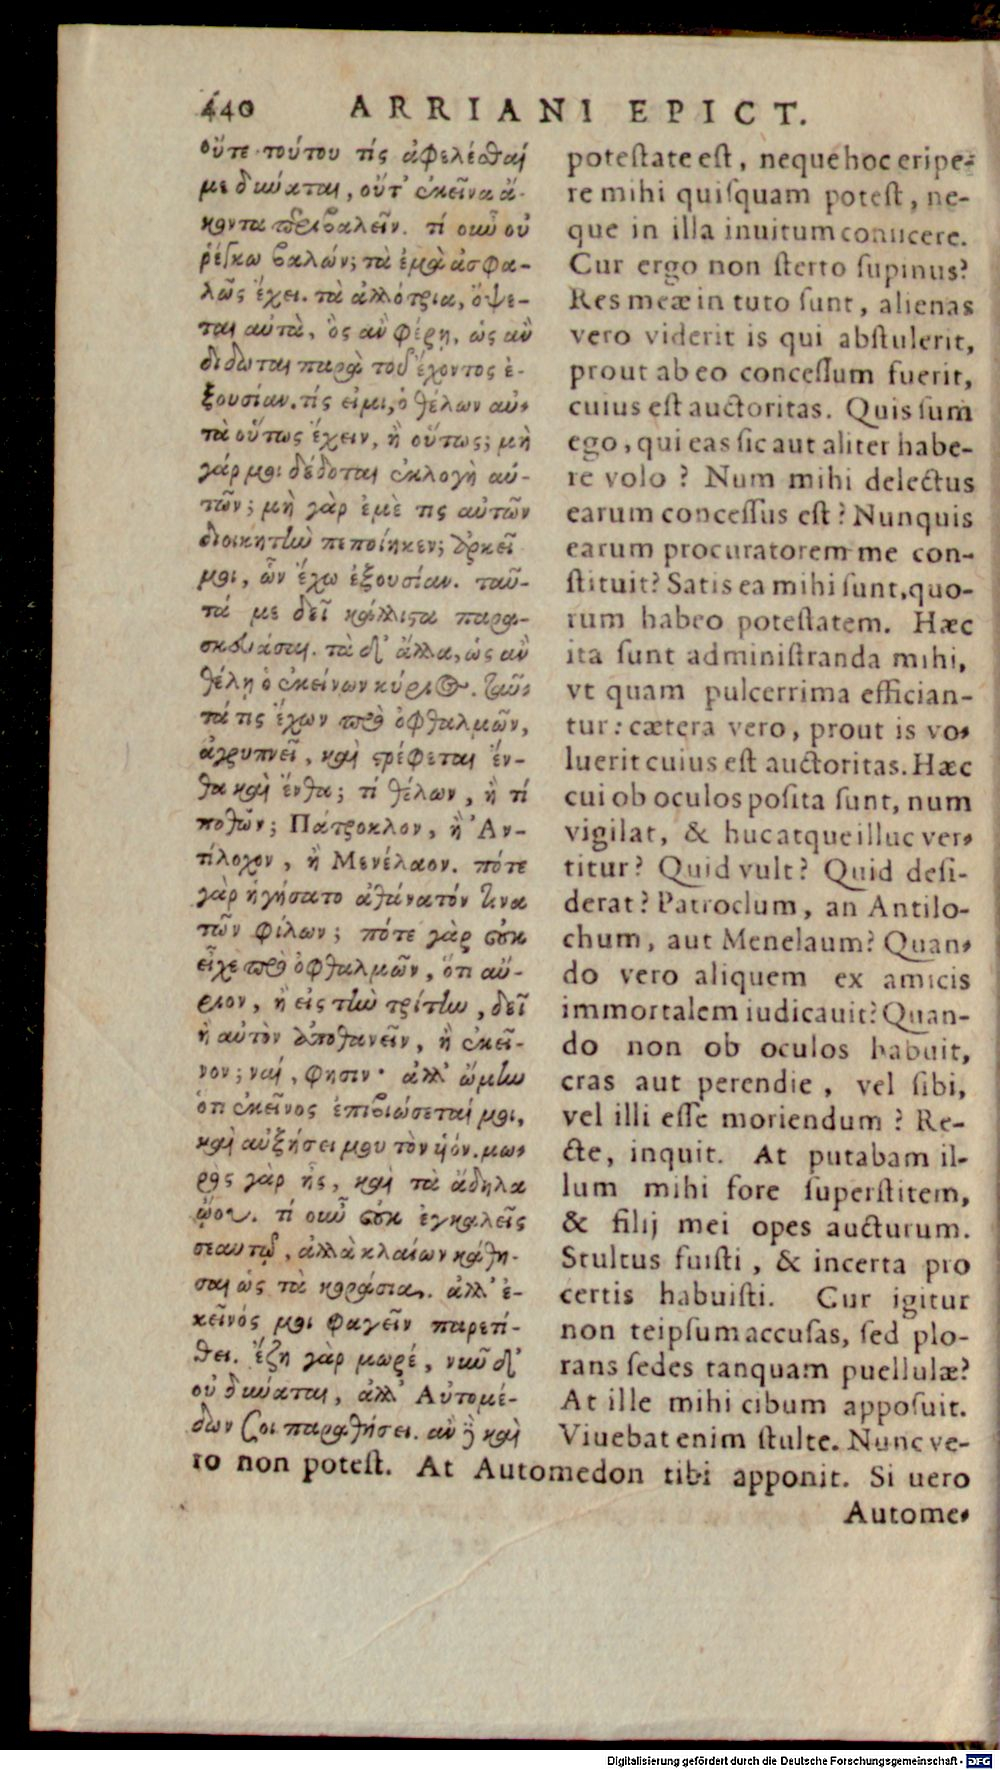 440 ARRIANI EPICT.
οὔτε τούτου τίς ἀφελέσθαι
με δύναται, οὔτ' ἐκεῖνα ἄ-
κοντα περιβαλεῖν. τί οὖν οὐ
ῥέγκω βαλών; τὰ ἐμὰ ἀσφα-
λῶς ἔχει. τὰ ἀλλότρια, ὄψε-
ται αὐτὰ, ὃς ἂν φέρῃ, ὡς ἂν
διδῶται παρὰ τοῦ ἔχοντος ἐ-
ξουσίαν. τίς εἰμι, ὁ θέλων αὐ-
τὰ οὕτως ἔχειν, ἢ οὕτως; μὴ
γάρ μοι δέδοται ἐκλογὴ αὐ-
τῶν; μὴ γὰρ ἐμὲ τις αὐτῶν
διοικητὴν πεποίηκεν; ἀρκεῖ
μοι, ὧν ἔχω ἐξουσίαν. ταῦ-
τά με δεῖ κάλλιστα παρα-
σκευάσαι. τὰ δ' ἄλλα, ὡς ἂν
θέλῃ ὁ ἐκείνων κύριος. ταῦ-
τά τις ἔχων πρὸ ὀφθαλμῶν,
ἀγρυπνεῖ, καὶ στρέφεται ἔν-
θα καὶ ἔνθα; τί θέλων, ἢ τί
ποθῶν; Πάτροκλον, ἢ Ἀν-
τίλοχον, ἢ Μενέλαον. πότε
γὰρ ἡγήσατο ἀθάνατόν τινα
τῶν φίλων; πότε γὰρ οὐκ
εἶχε πρὸ ὀφθαλμῶν, ὅτι αὔ-
ριον, ἢ εἰς τὴν τρίτην, δεῖ
ἢ αὐτὸν ἀποθανεῖν, ἢ ἐκεῖ-
νον; ναί, φησιν· ἀλλ' ᾤμην
ὅτι ἐκεῖνος ἐπιβιώσεταί μοι,
καὶ αὐξήσει μου τὸν ὑιόν. μω-
ρὸς γὰρ ἦς, καὶ τὰ ἄδηλα
ᾤου. τί οὖν οὐκ ἐγκαλεῖς
σεαυτῷ, ἀλλὰ κλαίων κάθη-
σαι ὡς τὰ κοράσια. ἀλλ' ἐ-
κεῖνός μοι φαγεῖν παρετί-
θει. ἔζη γὰρ μωρέ, νῦν δ'
οὐ δύναται, ἀλλ' Αὐτομέ-
δων σοι παραθήσει. ἂν δὲ καὶ
potestate est, neque hoc eripe-
re mihi quisquam potest, ne-
que in illa inuitum coniicere.
Cur ergo non sterto supinus?
Res meæ in tuto sunt, alienas
vero viderit is qui abstulerit,
prout ab eo concessum fuerit,
cuius est auctoritas. Quis sum
ego, qui eas sic aut aliter habe-
re volo? Num mihi delectus
earum concessus est? Nunquis
earum procuratorem me con-
stituit? Satis ea mihi sunt, quo-
rum habeo potestatem. Hæc
ita sunt administranda mihi,
vt quam pulcerrima effician-
tur: cætera vero, prout is vo-
luerit cuius est auctoritas. Hæc
cui ob oculos posita sunt, num
vigilat, & huc atque illuc ver-
titur? Quid vult? Quid desi-
derat? Patroclum, an Antilo-
chum, aut Menelaum? Quan-
do vero aliquem ex amicis
immortalem iudicauit? Quan-
do non ob oculos habuit,
cras aut perendie, vel sibi,
vel illi esse moriendum? Re-
cte, inquit. At putabam il-
lum mihi fore superstitem,
& filij mei opes aucturum.
Stultus fuisti, & incerta pro
certis habuisti. Cur igitur
non teipsum accusas, sed plo-
rans sedes tanquam puellulæ?
At ille mihi cibum apposuit.
Viuebat enim stulte. Nunc ve-
ro non potest. At Automedon tibi apponit. Si uero
Autome-
Digitalisierung gefördert durch die Deutsche Forschungsgemeinschaft - DFG